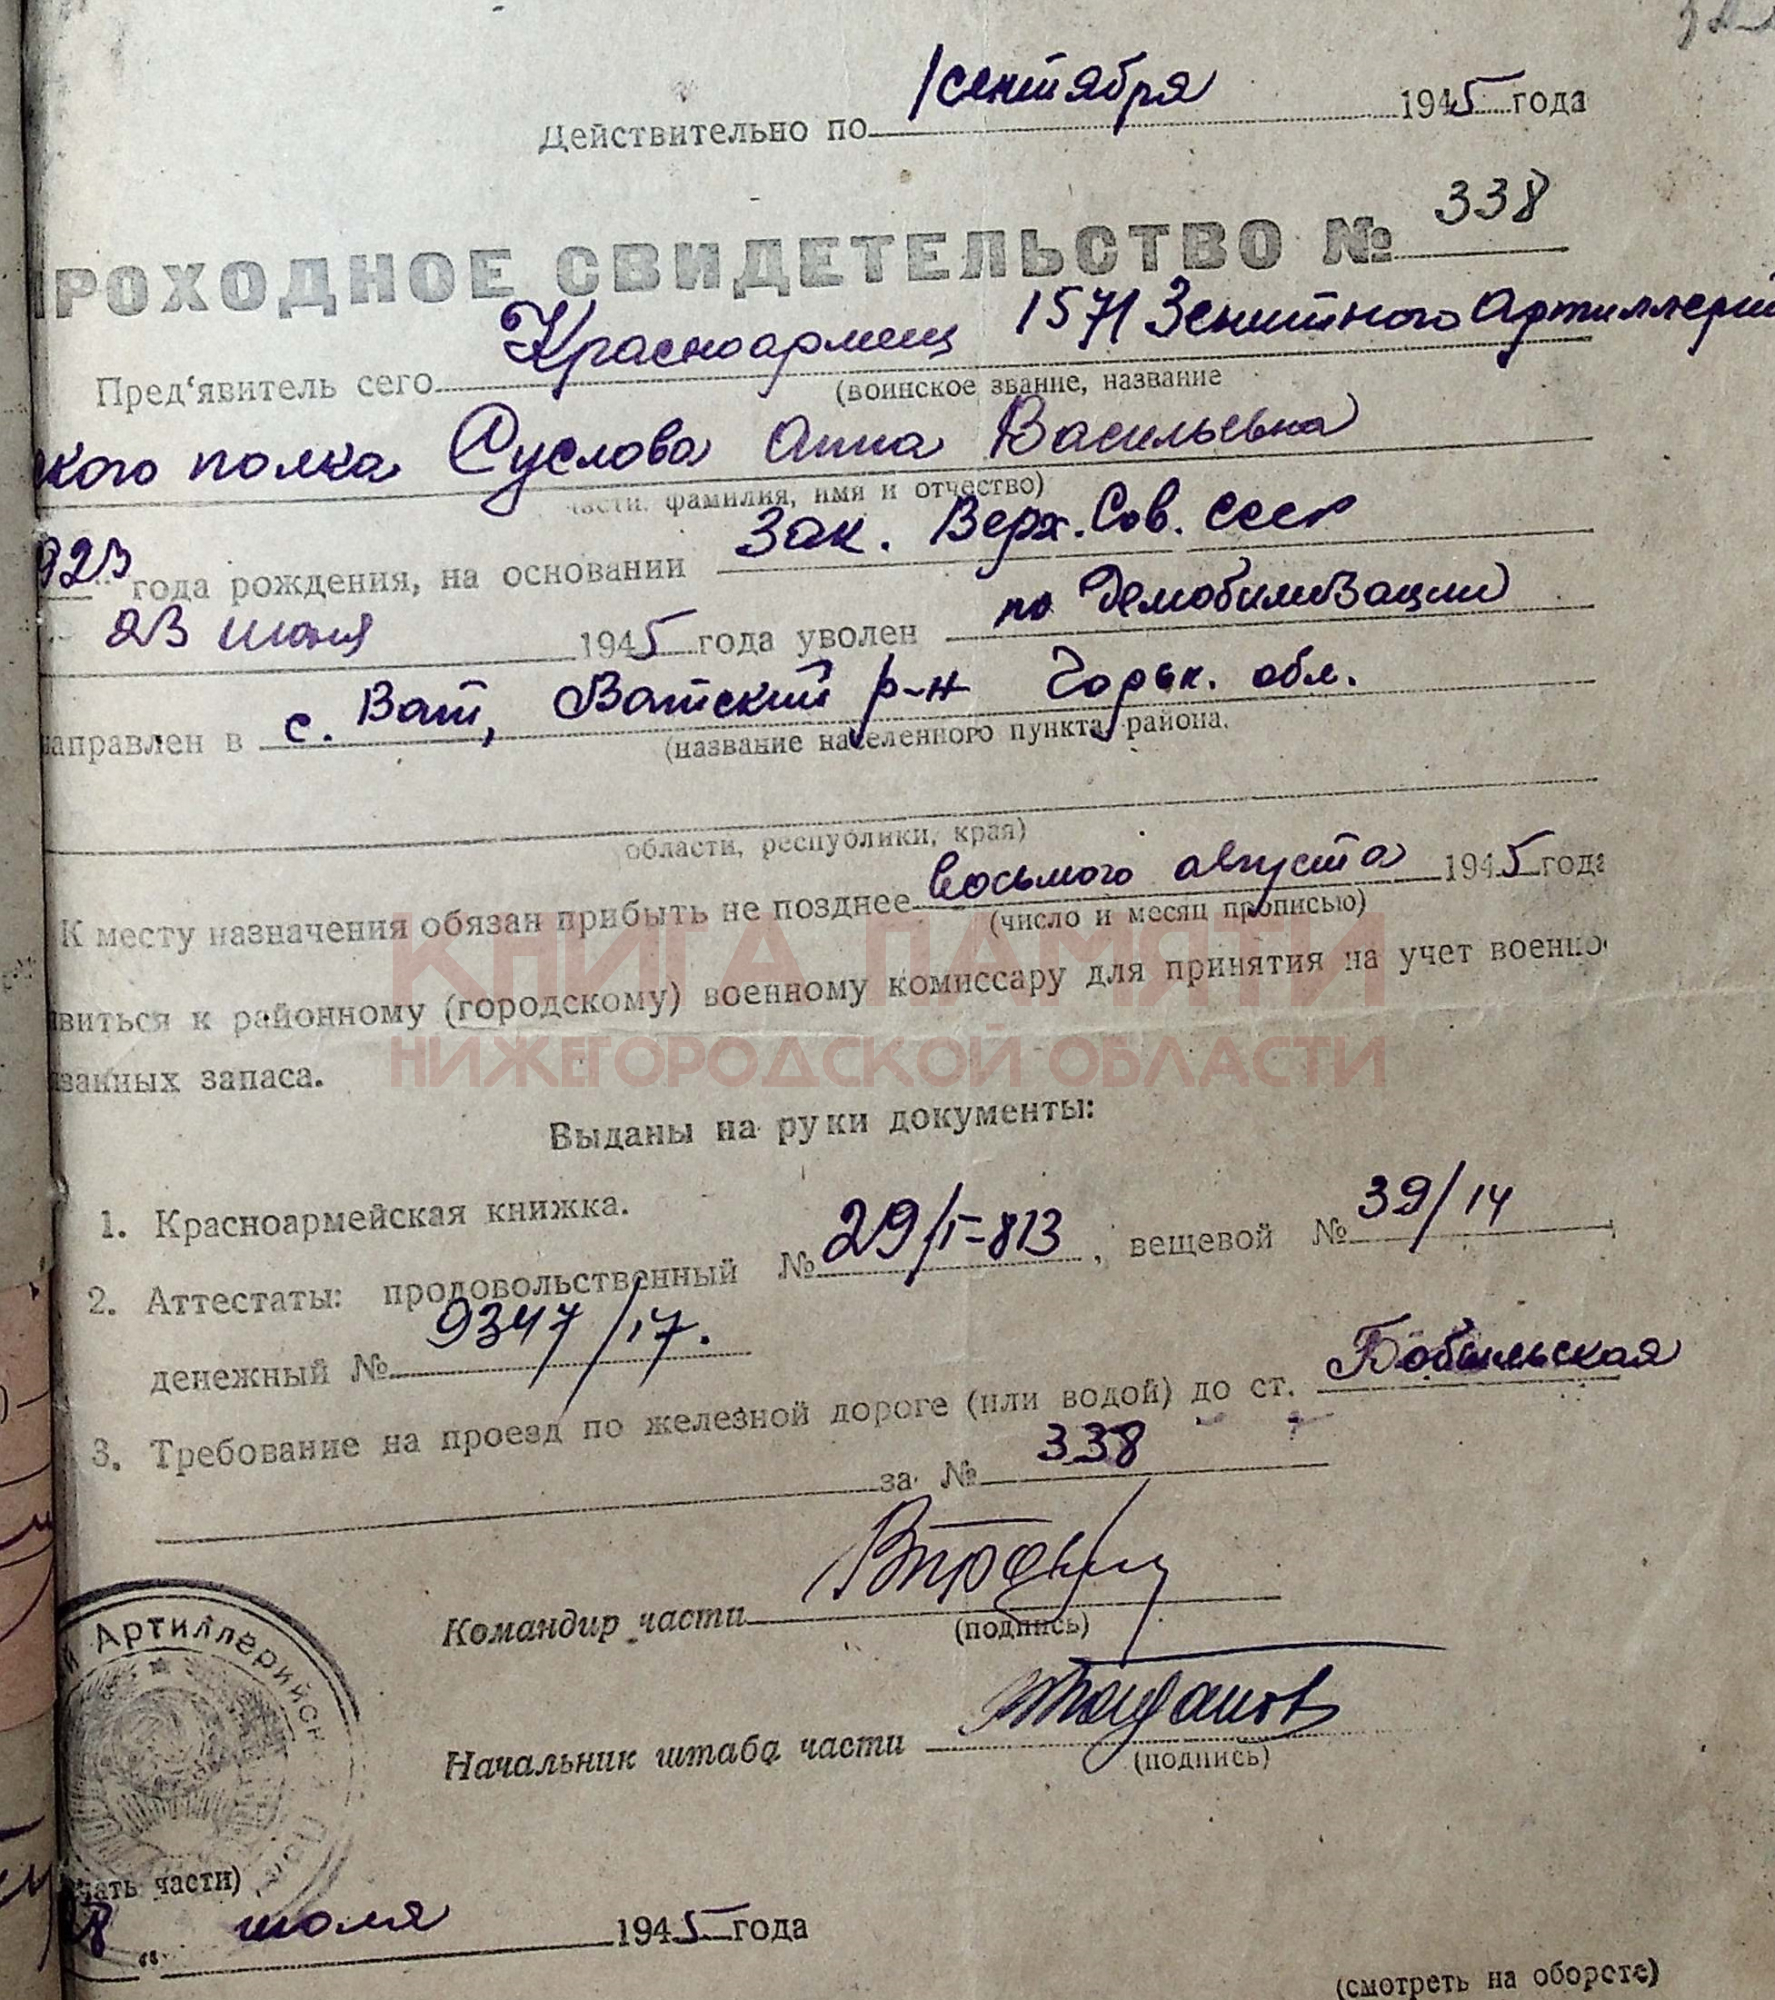 Действительно по 1 сентября 1945 года
ПРОХОДНОЕ СВИДЕТЕЛЬСТВО № 338
Пред‘явитель сего Красноармеец 1571 Зенитного Артиллерий
(воинское звание, название
ского полка Суслова Анна Васильевна
части, фамилия, имя и отчество)
923 года рождения, на основании Зак. Верх. Сов. СССР
23 июня 1945 года уволен по Демобилизации
направлен в с. Ват, Ватский р-н Горьк. обл.
(название населенного пункта, района,
области, республики, края)
К месту назначения обязан прибыть не позднее восьмого августа 1945 года
(число и месяц прописью)
КНИГА ПАМЯТИ
виться к районному (городскому) военному комиссару для принятия на учет военно
НИЖЕГОРОДСКОЙ ОБЛАСТИ
занных запаса.
Выданы на руки документы:
1. Красноармейская книжка.
2. Аттестаты: продовольственный № 29/I-813, вещевой № 39/14,
денежный № 9347/17.
3. Требование на проезд по железной дороге (или водой) до ст. Бобыльская
за № 338
Командир части
(подпись)
Начальник штаба части
(подпись)
Артиллерийск
чать части)
8 " июля 1945 года
(смотреть на обороте)